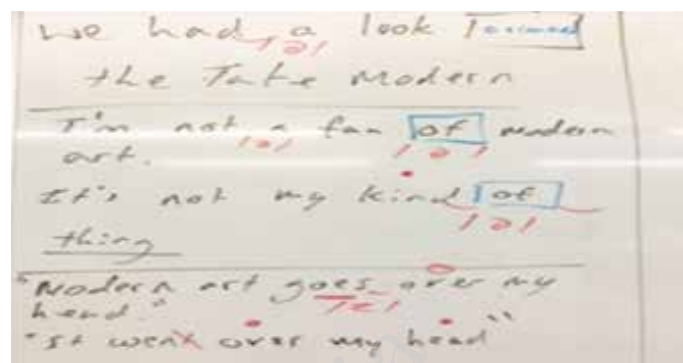 We had a look around
/ə/
the Tate Modern
I'm not a fan of modern
/ə/ /ə/
art.
It's not my kind of
/ə/
thing
"Modern art goes over my
head."
"It went over my head"